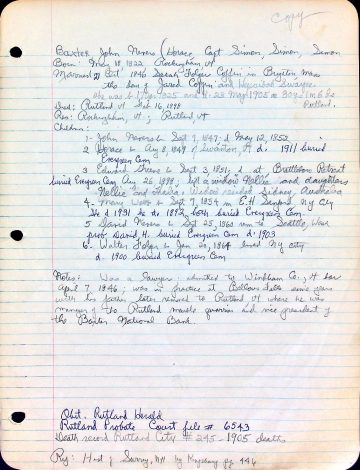 copy
Baxter John Nevers (Horace, Capt Simon, Simon, Simon
Born: May 18, 1822 Rockingham Vt
Married: Oct 1846 Sarah Folger Coffin in Brighton Mass
the dau of Jared Coffin and
she was b. 1825 and d. 28 May 1905 ae 80
Died: Rutland Vt 16, 1898 Rutland.
Res: Rockingham, Vt ; Rutland, Vt
Children:
1- John Nevers b Sept 9, 1847 - d May 12, 1852
2 Horace b Aug 8, 1849 of Swanton, Vt d. 1911 buried
Evergreen Cem
3 Edward Greene b Sept 3, 1851; d at Brattleboro Retreat
buried Evergreen Cem Aug 26, 1898; left a widow Nellie and daughters
Nellie and Widow resided Sidney, Australia
4- Mary b Sept 9, 1854 m E.H. Sanford NY City
She d 1931 he d. 1892 both buried Evergreen Cem.
5 David Nevers b Sept 25, 1860 rem to Seattle, Wash
prob David H. buried Evergreen Cem d. 1903
6- Walter Folger b Jan 20, 1864 lived NY city
d- 1900 buried Evergreen Cem
Notes: Was a lawyer admitted by Windham Co, Vt bar
April 7, 1846; was in practice at Bellows Falls some years
with his father later removed to Rutland Vt where he was
manager of the Rutland marble quarries and vice president of
the Baxter National Bank.
Obit. Rutland Herald
Rutland Probate Court file # 6543
Death record Rutland City # 245 - 1905 deaths
Ref: Hist of Surry, NH by Kingsbury pg 446